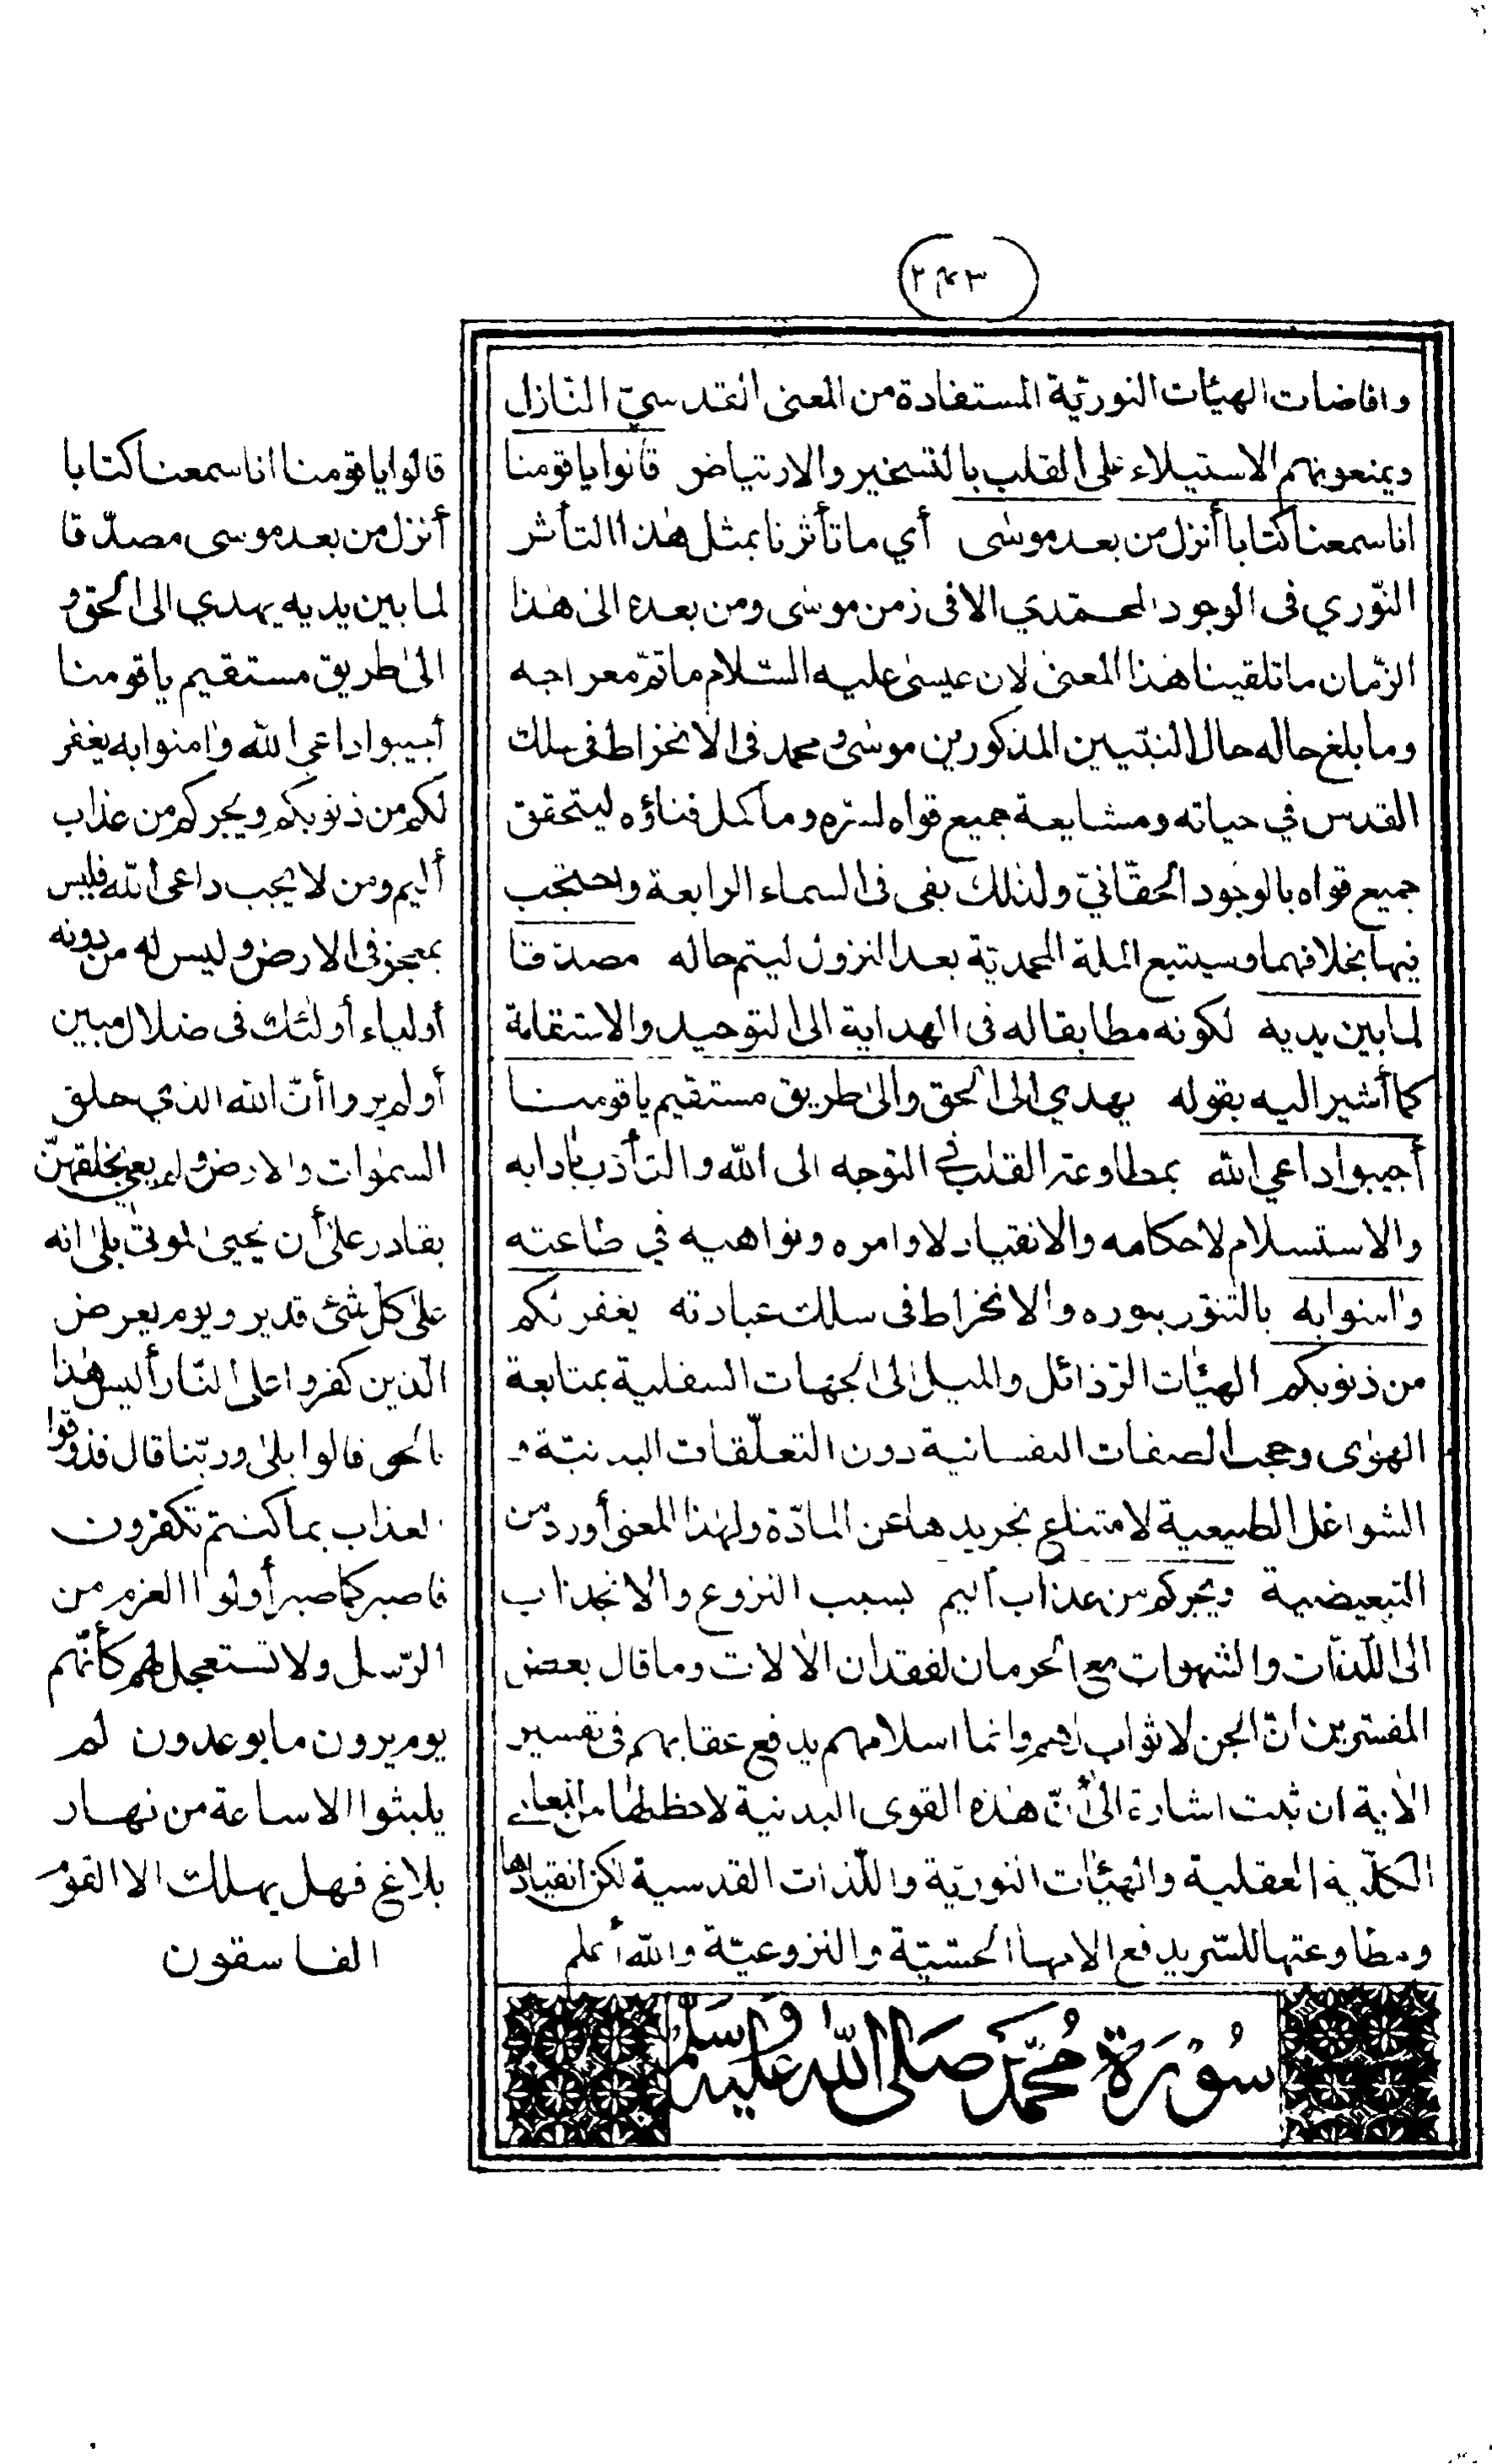 (٢٤٣)
وافاضات الهيئات النورية المستفادة من المعنى القدسيّ النّازل
ويمنعونهم الاستيلاء على القلب بالتسخير والارتياض قالوا ياقومنا
انا سمعنا كتابا أنزل من بعد موسى أي ما تأثرنا بمثل هذا التأثر
النّوري فى الوجود المحمّدي الا فى زمن موسى ومن بعده الى هذا
الزّمان ما تلقينا هذا المعنى لان عيسى عليه السّلام ما تمّ معراجه
وما بلغ حاله حال النبّيين المذكورين موسى ومحمد فى الانخراط فى سلك
القدس في حياته ومشايعة جميع قواه لسرّه وما كمل فناؤه ليتحقق
جميع قواه بالوجود الحقّانيّ ولذلك بقى فى السماء الرابعة واحتجب
فيها بخلافهما وسيتبع الملة المحمديّة بعد النزول ليتم حاله مصدّقا
لما بين يديه لكونه مطابقا له فى الهداية الى التوحيد والاستقامة
كما أشير اليه بقوله يهدي الى الحق والى طريق مستقيم ياقومنا
أجيبوا داعي الله بمطاوعة القلب في التوجه الى الله والتأدّب بآدابه
والاستسلام لاحكامه والانقياد لاوامره ونواهيه في طاعته
وآمنوا به بالتنوّر بنوره والانخراط فى سلك عبادته يغفر لكم
من ذنوبكم الهيئات الرّذائل والميل الى الجهات السفلية بمتابعة
الهوى وحجب الصفات النفسانية دون التعلّقات البدنيّة و
الشواغل الطبيعية لامتناع تجريدها عن المادّة ولهذا المعنى أورد من
التبعيضية ويجركم من عذاب أليم بسبب النزوع والانجذاب
الى اللّذّات والشهوات مع الحرمان لفقدان الآلات وما قال بعض
المفسّرين انّ الجن لا ثواب لهم وانما اسلامهم يدفع عقابهم فى تفسير
الآية ان ثبت اشارة الى أنّ هذه القوى البدنية لا حظ لها من المعاني
الكلّية العقلية والهيئات النوريّة واللّذات القدسية لكن انقيادها
ومطاوعتها للسّر يدفع آلامها الحسّيّة والنزوعيّة والله أعلم
سُوْرَةُ مُحَمَّدٍ صَلَّى اللّهُ عَلَيْهِ وَسَلَّمَ
قالوا ياقومنا انا سمعنا كتابا
أنزل من بعد موسى مصدّقا
لما بين يديه يهدي الى الحق و
الى طريق مستقيم ياقومنا
أجيبوا داعي الله وآمنوا به يغفر
لكم من ذنوبكم ويجركم من عذاب
أليم ومن لا يجب داعى الله فليس
بمعجز فى الارض وليس له من دونه
أولياء أولئك فى ضلال مبين
أولم يروا أنّ الله الذي خلق
السموات والارض ولم يعي بخلقهنّ
بقادر على أن يحيى الموتى بلى انه
على كل شئ قدير ويوم يعرض
الّذين كفروا على النّار أليس هذا
بالحق قالوا بلى وربّنا قال فذوقوا
العذاب بما كنتم تكفرون
فاصبر كما صبر أولوا العزم من
الرّسل ولا تستعجل لهم كأنّهم
يوم يرون ما يوعدون لم
يلبثوا الا ساعة من نهار
بلاغ فهل يهلك الا القوم
الفاسقون